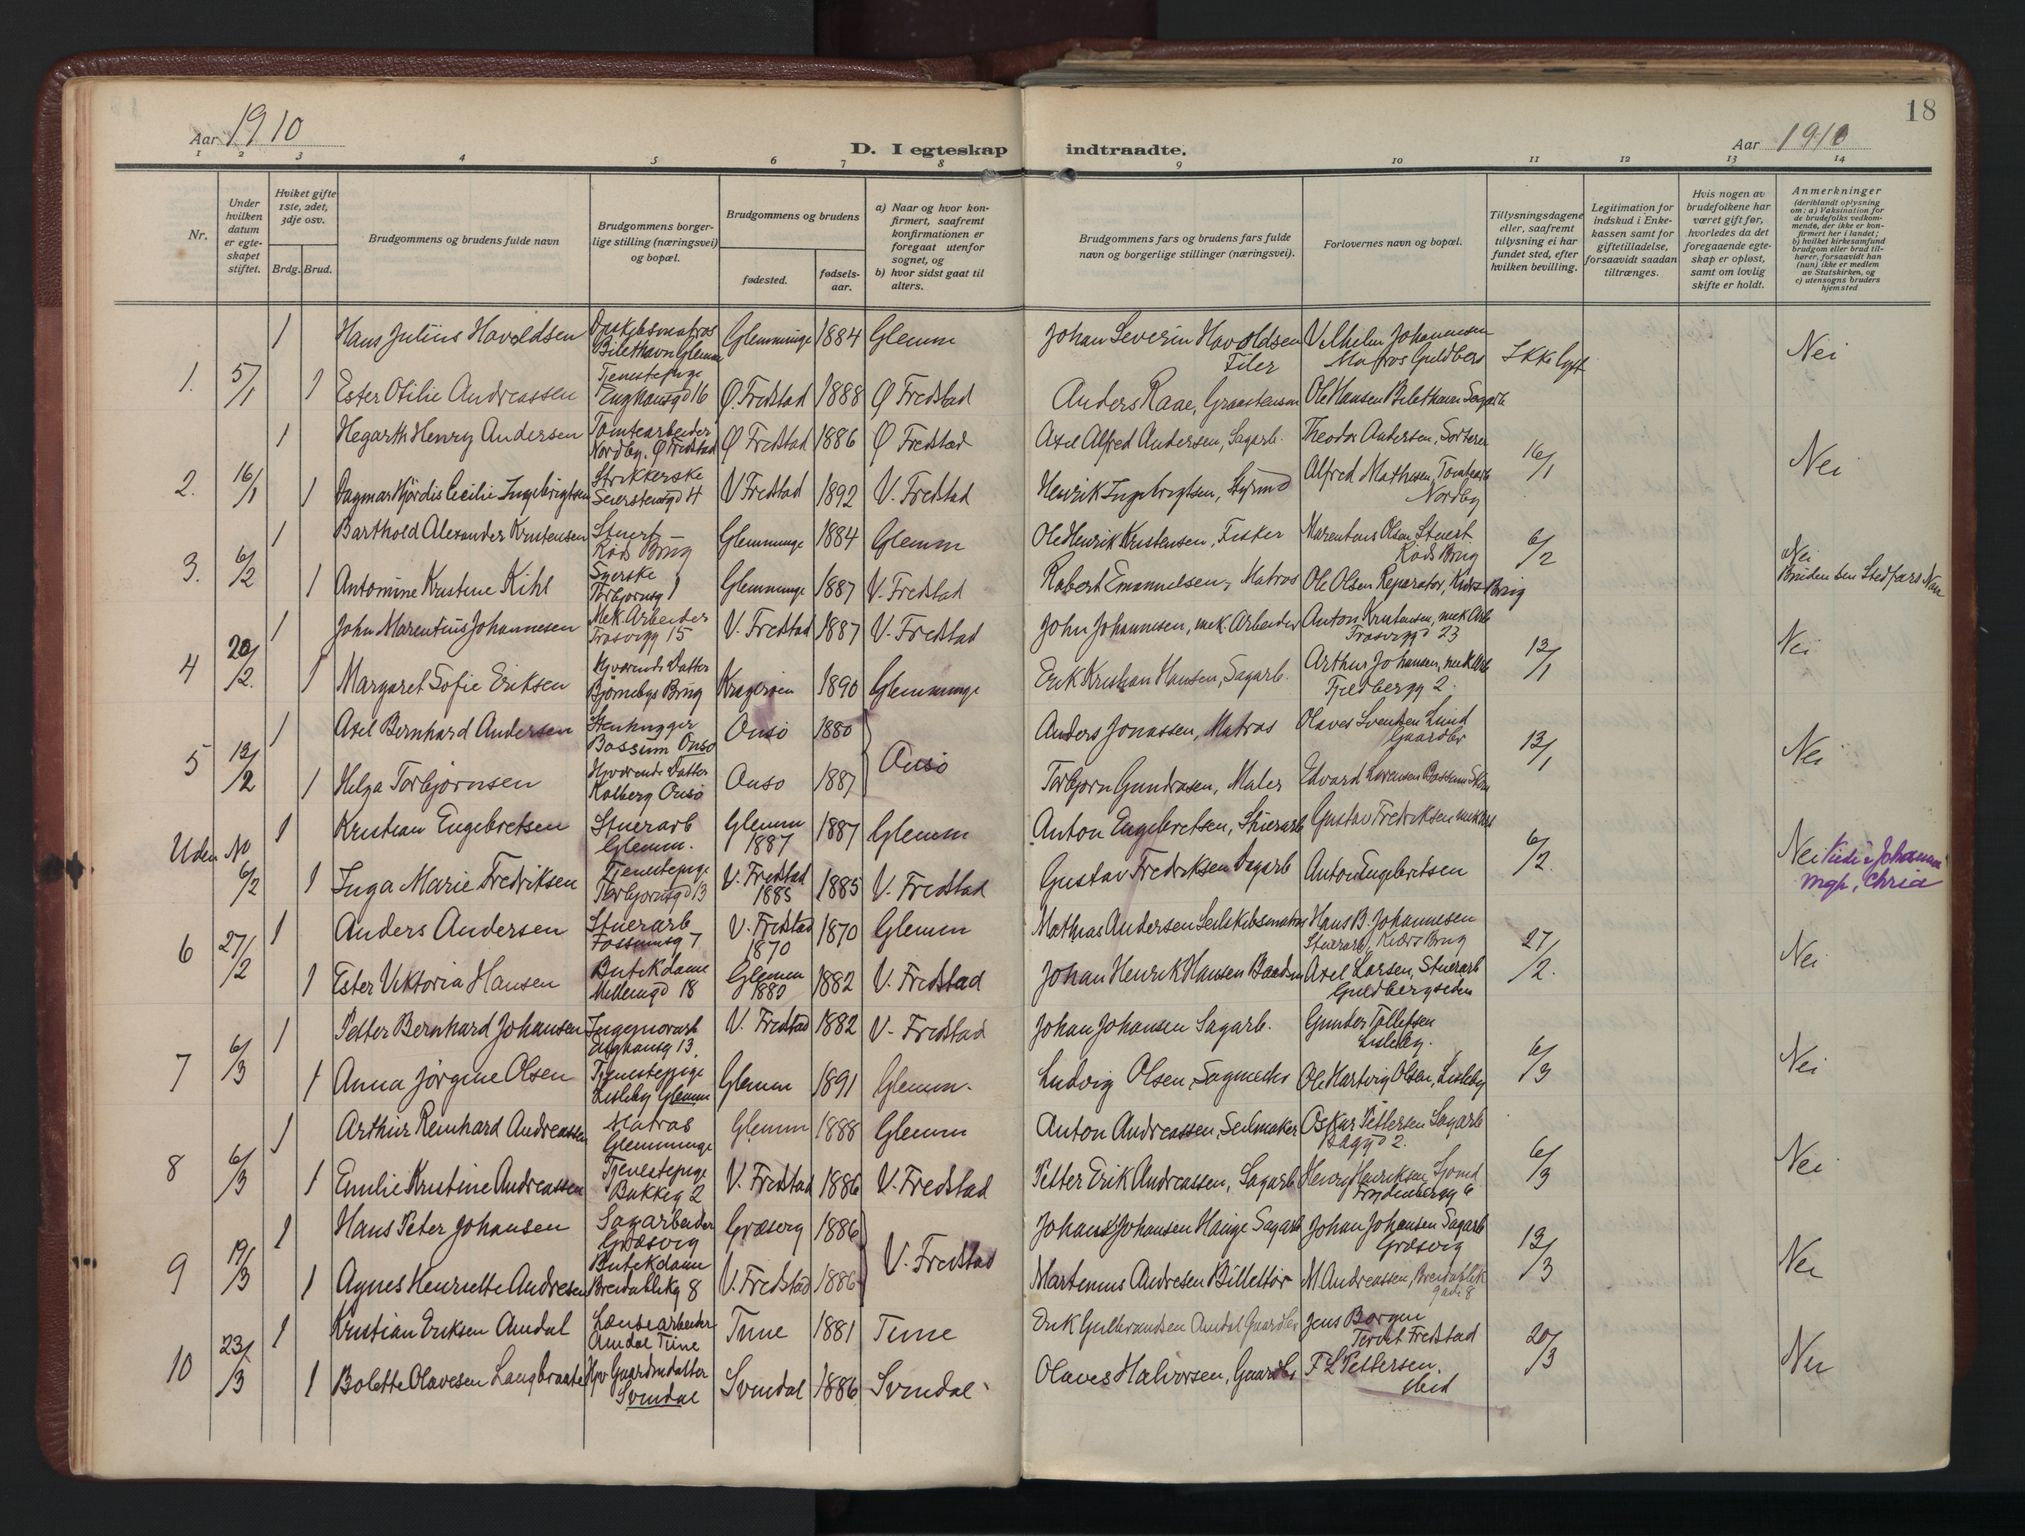 18
Aar 1910
D. I egteskap indtraadte.
Aar 1910
1 2 3 4 5 6 7 8 9 10 11 12 13 14
Nr.
Under hvilken datum er egteskapet stiftet.
Hviket gifte 1ste, 2det, 3dje osv.
Brdg. Brud.
Brudgommens og brudens fulde navn
Brudgommens borgerlige stilling (næringsvei) og bopæl.
Brudgommens og brudens
fødested.
fødselsaar.
a) Naar og hvor konfirmert, saafremt konfirmationen er foregaat utenfor sognet, og
b) hvor sidst gaat til alters.
Brudgommens fars og brudens fars fulde navn og borgerlige stillinger (næringsvei).
Forlovernes navn og bopæl.
Tillysningsdagene eller, saafremt tillysning ei har fundet sted, efter hvilken bevilling.
Legitimation for indskud i Enkekassen samt for giftetilladelse, forsaavidt saadan tiltrænges.
Hvis nogen av brudefolkene har været gift før, hvorledes da det foregaaende egteskap er opløst, samt om lovlig skifte er holdt.
Anmerkninger
(deriblandt oplysning om: a) Vaksination for de brudefolks vedkommende, der ikke er konfirmert her i landet; b) hvilket kirkesamfund brudgom eller brud tilhører, forsaavidt han (hun) ikke er medlem av Statskirken, og c) utensogns bruders hjemsted
1. 5/1
1 Hans Julius Havoldsen Glemminge 1884 Glemm Johan Severin Havoldsen Filer Vilhelm Johannesen Matros Guldberg Ikke lyst Nei
1 Ester Otilie Andreassen Tjenestepige Enghausgd 16 Ø. Fredstad 1888 Ø Fredstad Anders Raae, Ole Hansen
2. 16/1
1 Hegarth Henry Andersen Tomtearbeider Nordby. Ø Fredstad Ø Fredstad 1886 Ø Fredstad Axel Alfred Andersen, Sagarb. Theodor Andersen, Sorterer 16/1 Nei
1 Dagmar Hjördis Cecilie Ingebrigtsen Strikkerske Seierstensgd 4 V Fredstad 1892 V. Fredstad Henrik Ingebrigtsen, Styrmd Alfred Mathisen, Nordby
3. 6/2
1 Barthold Alexander Kristensen Stuert Kiøs Brug Glemminge 1884 Glemm Ole Henrik Kristensen, Fisker Marentius Olsen Stuert. 6/2 Nei
1 Antomine Kristine Kihl Syerske Torbjornsg 1 Glemminge 1887 V. Fredstad Robert Emanuelsen, Matros Ole Olsen Reparatør, Bruden sen Stedfars Navn
4 20/2.
1 John Marentius Johannesen Mek. Arbeider Trosvigg 15 V. Fredstad 1887 V. Fredstad John Johannesen, mek. Arbeider Anton Kristensen, mek Arb Trosviggd 23 13/1 Nei
1 Margaret Sofie Eriksen Hjværende Datter Bjørnebys Brug Kragerøen 1890 Glemminge Erik Kristian Hansen, Sagarb. Arthur Johansen, mek Arb Fjeldbergg 2.
5 13/2
1 Axel Bernhard Andersen Stenhugger Bossum Onsø Onsø 1880 Onsø Anders Jonassen, Matros Olaves Svendsen Lund Gaardbr 13/1 Nei
1 Helga Torbjørnsen Hjværende Datter Kolberg Onsø Onsø 1887 Torbjørn Gundrosen, Maler Edvard Lorensen Bossum
Uden No 6/2
1 Kristian Engebretsen Stuerarb Glemm. Glemm 1887 1887 Glemm Anton Engebretsen, Stuerarb Gustav Fredriksen mek Arb 6/2. Nei
1 Inga Marie Fredriksen Tjenestepige Torbjornsgd 13 V. Fredstad 1885 1885 V. Fredstad Gustav Fredriksen Sagarb Anton Engebretsen
6 27/2
1 Anders Andersen Stuerarb Fossumsg 7 V. Fredstad 1870 1870 Glemm Mathias Andersen Seilskibsmatros Hans B. Johannesen Stuerarb, Kiærs Brug 27/2. Nei
1 Ester Viktoria Hansen Butikdame Mellemgd 18 Glemm 1880 1882 V. Fredstad Johan Henrik Hansen Baadsm Axel Larsen, Stuerarb
7 6/3
1 Petter Bernhard Johansen Enghausg 13. V. Fredstad 1882 V. Fredstad Johan Johansen Sagarb. Gunder Tollefsen Lisleby. 6/3 Nei
1 Anna Jørgine Olsen Tjenestepige Lisleby Glemm Glemm 1891 Glemm. Ludvig Olsen, Sagmester Ole Hartvig Olsen, Lisleby
8 6/3
1 Arthur Reinhard Andreassen Matros Glemminge Glemm 1888 Glemm Anton Andreassen, Seilmaker Oskar Pettersen Sagarb 6/3 Nei
1 Emilie Kristine Andreassen Tjenestepige Bakkeg 2 V. Fredstad 1886 V. Fredstad Petter Erik Andreassen, Sagarb Henry Henriksen Sjømd Frydenbergg 6
9 19/3
1 Hans Peter Johansen Sagarbeider Græsvig Græsvig 1886 V. Fredstad Johans Johansen Hauge Sagarb Johan Johansen Sagarb Græsvig 13/3 Nei
1 Agnes Henriette Andresen Butikdame Breidablikg 8 V. Fredstad 1886 Martenius Andresen Billettør M Andreassen, Breidablik gade 8
10 23/3
1 Kristian Eriksen Amdal Lænsearbeider Amdal Tune Tune 1881 Tune Erik Gulbrandsen Amdal Gaardbr Jens Borgen Fredstad 20/3 Nei
1 Bolette Olavesen Langbraate Hjv Gaardmdatter Svindal Svindal 1886 Svindal Olaves Halvorsen, Gaardbr F L Pettersen. ibid